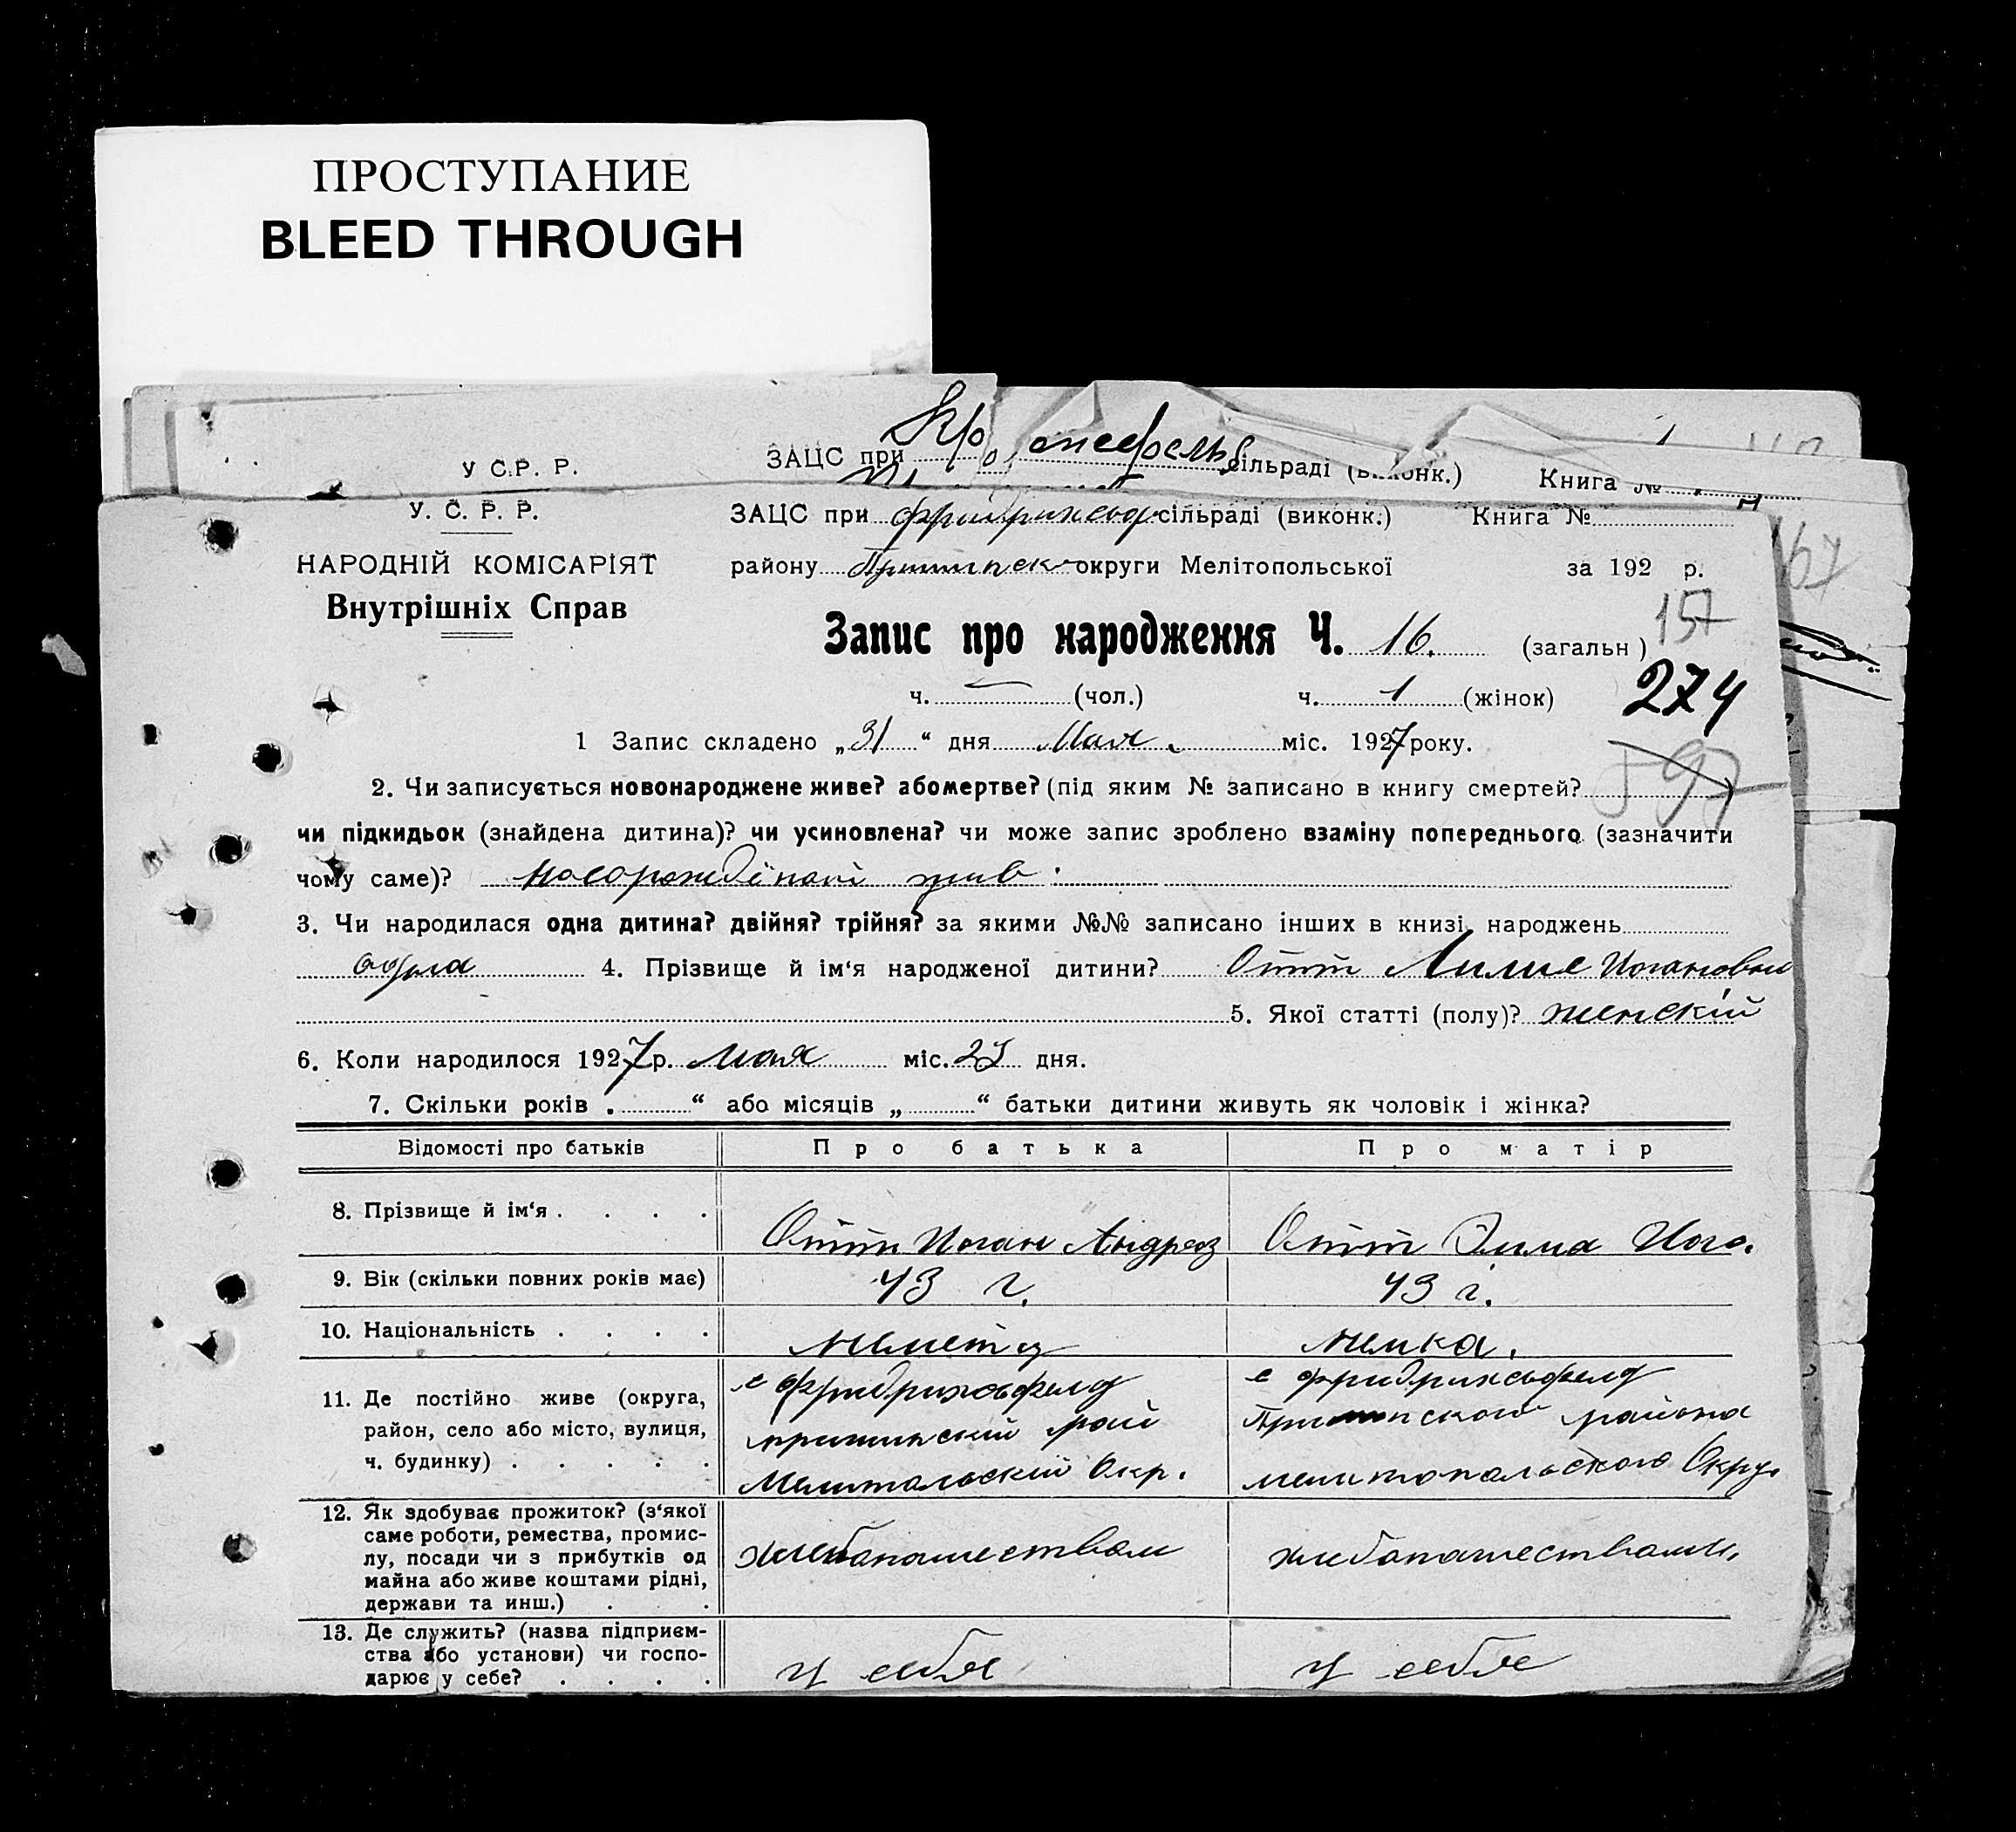 ПРОСТУПАНИЕ
BLEED THROUGH
У С.Р. Р.
ЗАЦС при сільраді (виконк.) Книга №
У. С. Р. Р.
ЗАЦС при Фридрихсфор сільраді (виконк.) Книга №
НАРОДНІЙ КОМІСАРІЯТ
району Пришипск округи Мелітопольської за 192 р.
67
Внутрішніх Справ
Запис про народження Ч. 16. (загальн)
157
ч. — (чол.) ч. 1 (жінок)
274
1 Запис складено „31“ дня Мая міс. 1927 року.
2. Чи записується новонароджене живе? або мертве? (під яким № записано в книгу смертей?
597
чи підкидьок (знайдена дитина)? чи усиновлена? чи може запис зроблено взаміну попереднього (зазначити
чому саме)? жив.
3. Чи народилася одна дитина? двійня? трійня? за якими №№ записано інших в книзі народжень
одна 4. Прізвище й ім‘я народженої дитини? Отт Лилие Иогановни
5. Якої статті (полу)? женский
6. Коли народилося 1927 р. мая міс. 23 дня.
7. Скільки років „ “ або місяців „ “ батьки дитини живуть як чоловік і жінка?
Відомості про батьків Про батька Про матір
8. Прізвище й ім‘я . . . . Отт Иоган Андреев Отт Эмма Иога.
9. Вік (скільки повних років має) 43 г. 43 г.
10. Національність . . . . немец немка.
11. Де постійно живе (округа,
район, село або місто, вулиця,
ч. будинку) . . . . .
с Фридрихсфелд
пришипский рай
Мелитопольский Окр.
с Фридрихсфелд
Пришипского района
мелитопольского Окру.
12. Як здобуває прожиток? (з‘якої
саме роботи, ремества, промис-
лу, посади чи з прибутків од
майна або живе коштами рідні,
держави та инш.) . .
хлебопашеством
хлебопашеством.
13. Де служить? (назва підприєм-
ства або установи) чи госпо-
дарює у себе? . . . .
у себя
у себя